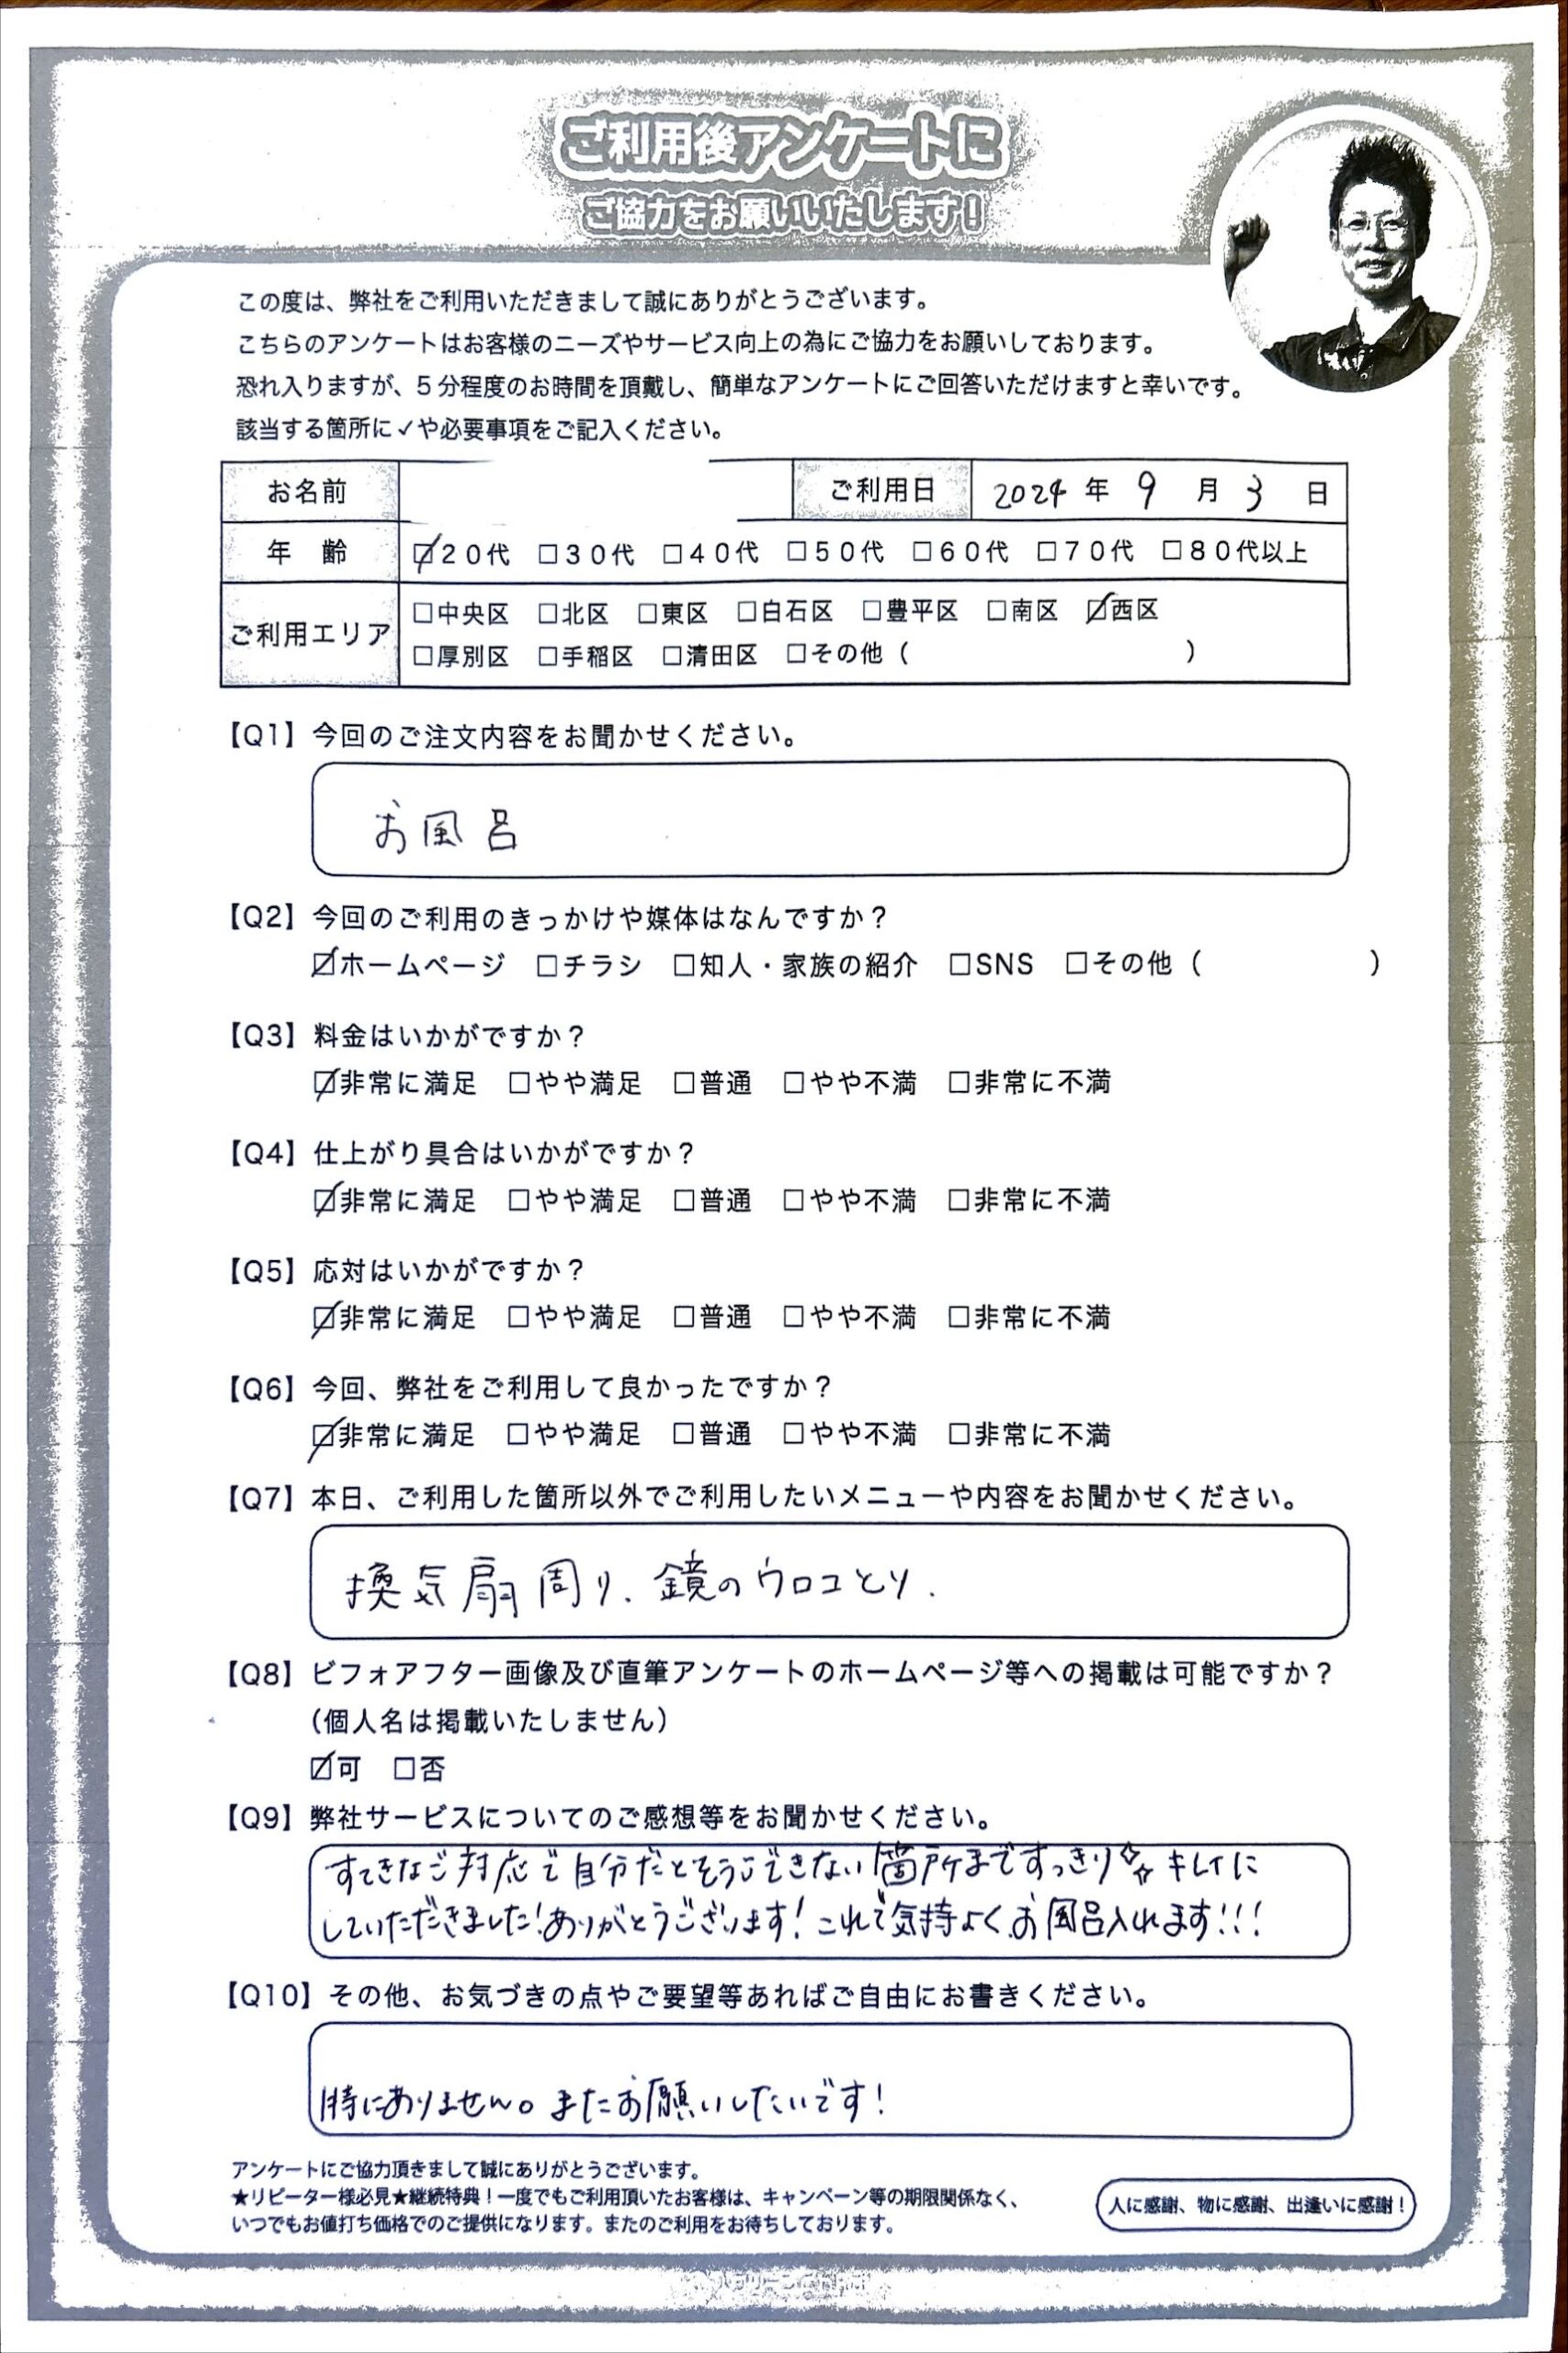 ご利用後アンケートに
ご協力をお願いいたします!
この度は、弊社をご利用いただきまして誠にありがとうございます。
こちらのアンケートはお客様のニーズやサービス向上の為にご協力をお願いしております。
恐れ入りますが、5分程度のお時間を頂戴し、簡単なアンケートにご回答いただけますと幸いです。
該当する箇所に✓や必要事項をご記入ください。
お名前 ご利用日 2024年 9月 3日
年齢 ☑20代 □30代 □40代 □50代 □60代 □70代 □80代以上
ご利用エリア □中央区 □北区 □東区 □白石区 □豊平区 □南区 ☑西区
□厚別区 □手稲区 □清田区 □その他( )
【Q1】今回のご注文内容をお聞かせください。
お風呂
【Q2】今回のご利用のきっかけや媒体はなんですか?
☑ホームページ □チラシ □知人・家族の紹介 □SNS □その他( )
【Q3】料金はいかがですか?
☑非常に満足 □やや満足 □普通 □やや不満 □非常に不満
【Q4】仕上がり具合はいかがですか?
☑非常に満足 □やや満足 □普通 □やや不満 □非常に不満
【Q5】応対はいかがですか?
☑非常に満足 □やや満足 □普通 □やや不満 □非常に不満
【Q6】今回、弊社をご利用して良かったですか?
☑非常に満足 □やや満足 □普通 □やや不満 □非常に不満
【Q7】本日、ご利用した箇所以外でご利用したいメニューや内容をお聞かせください。
換気扇周り、鏡のウロコとり.
【Q8】ビフォアフター画像及び直筆アンケートのホームページ等への掲載は可能ですか?
(個人名は掲載いたしません)
☑可 □否
【Q9】弊社サービスについてのご感想等をお聞かせください。
すてきなご対応で自分だとそうじできない箇所まですっきり✨キレイに
していただきました!ありがとうございます!これで気持よくお風呂入れます!!!
【Q10】その他、お気づきの点やご要望等あればご自由にお書きください。
特にありません。またお願いしたいです!
アンケートにご協力頂きまして誠にありがとうございます。
★リピーター様必見★継続特典!一度でもご利用頂いたお客様は、キャンペーン等の期限関係なく、
いつでもお値打ち価格でのご提供になります。またのご利用をお待ちしております。
人に感謝、物に感謝、出逢いに感謝!